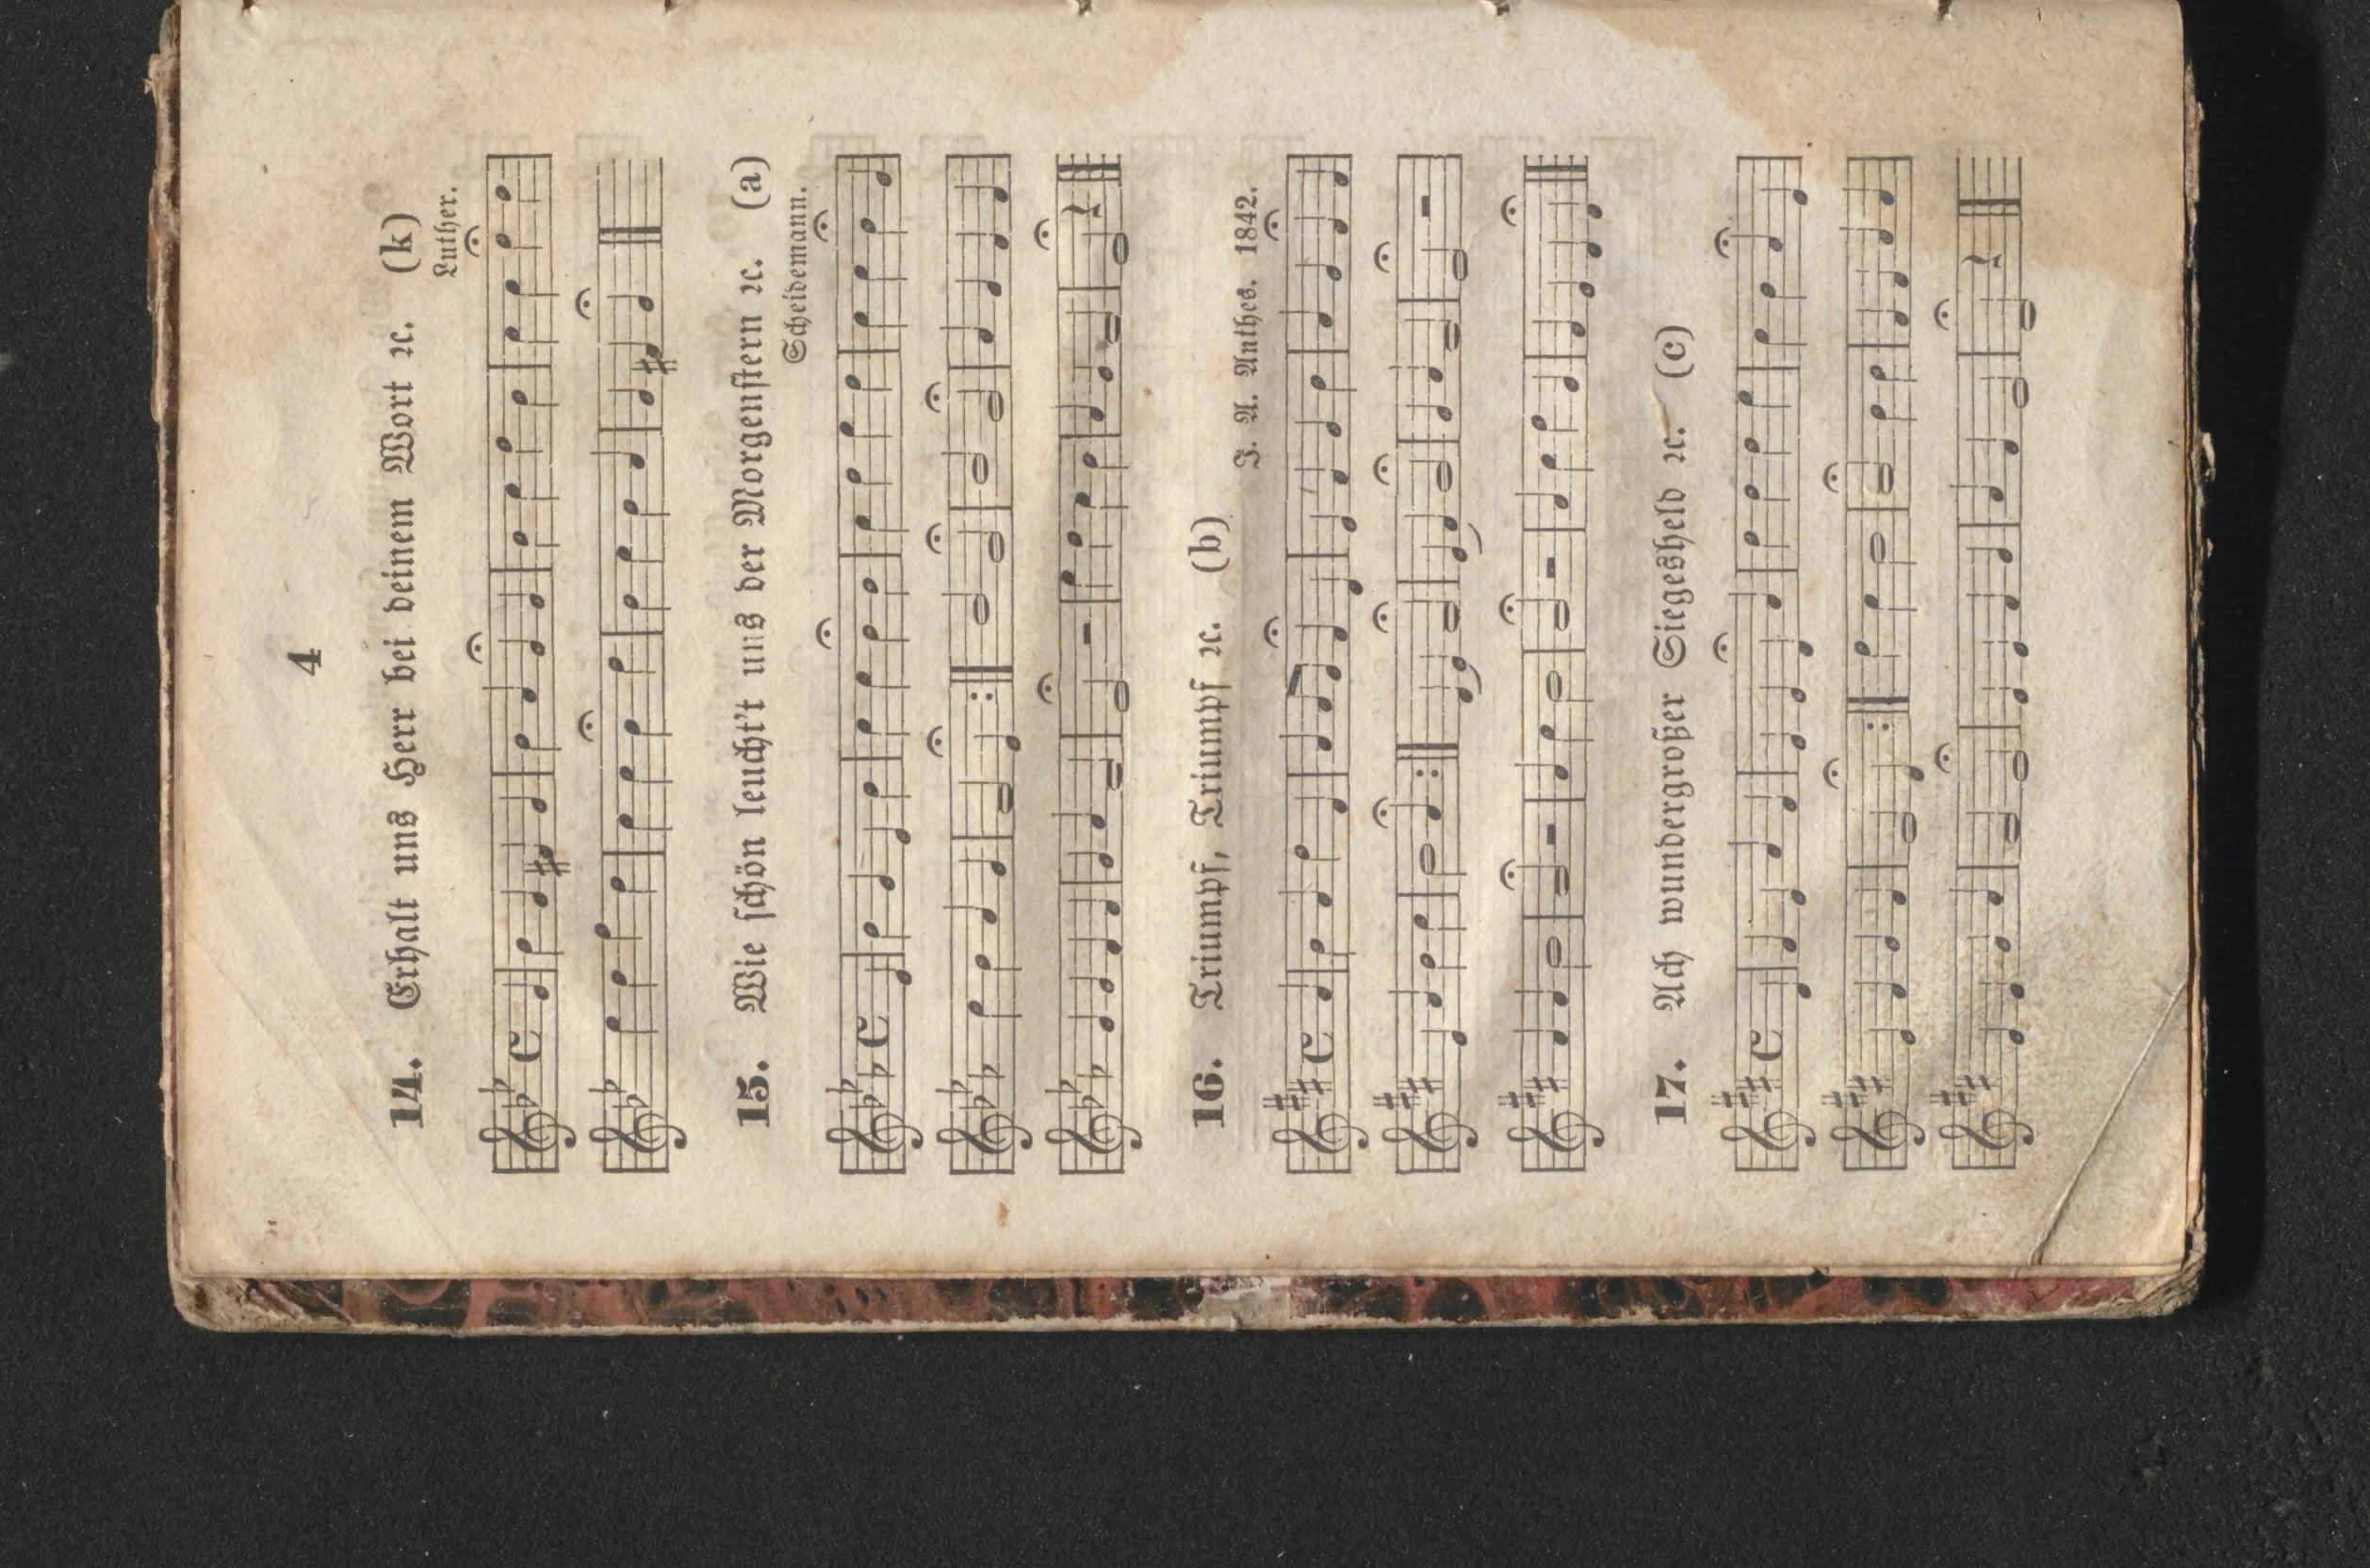 4
14. Erhalt uns Herr bei deinem Wort ꝛc. (k)
Luther.
15. Wie schön leucht't uns der Morgenstern ꝛc. (a)
Scheidemann.
16. Triumpf, Triumpf ꝛc. (b)
J. A. Anthes. 1842.
17. Ach wundergroßer Siegesheld ꝛc. (c)